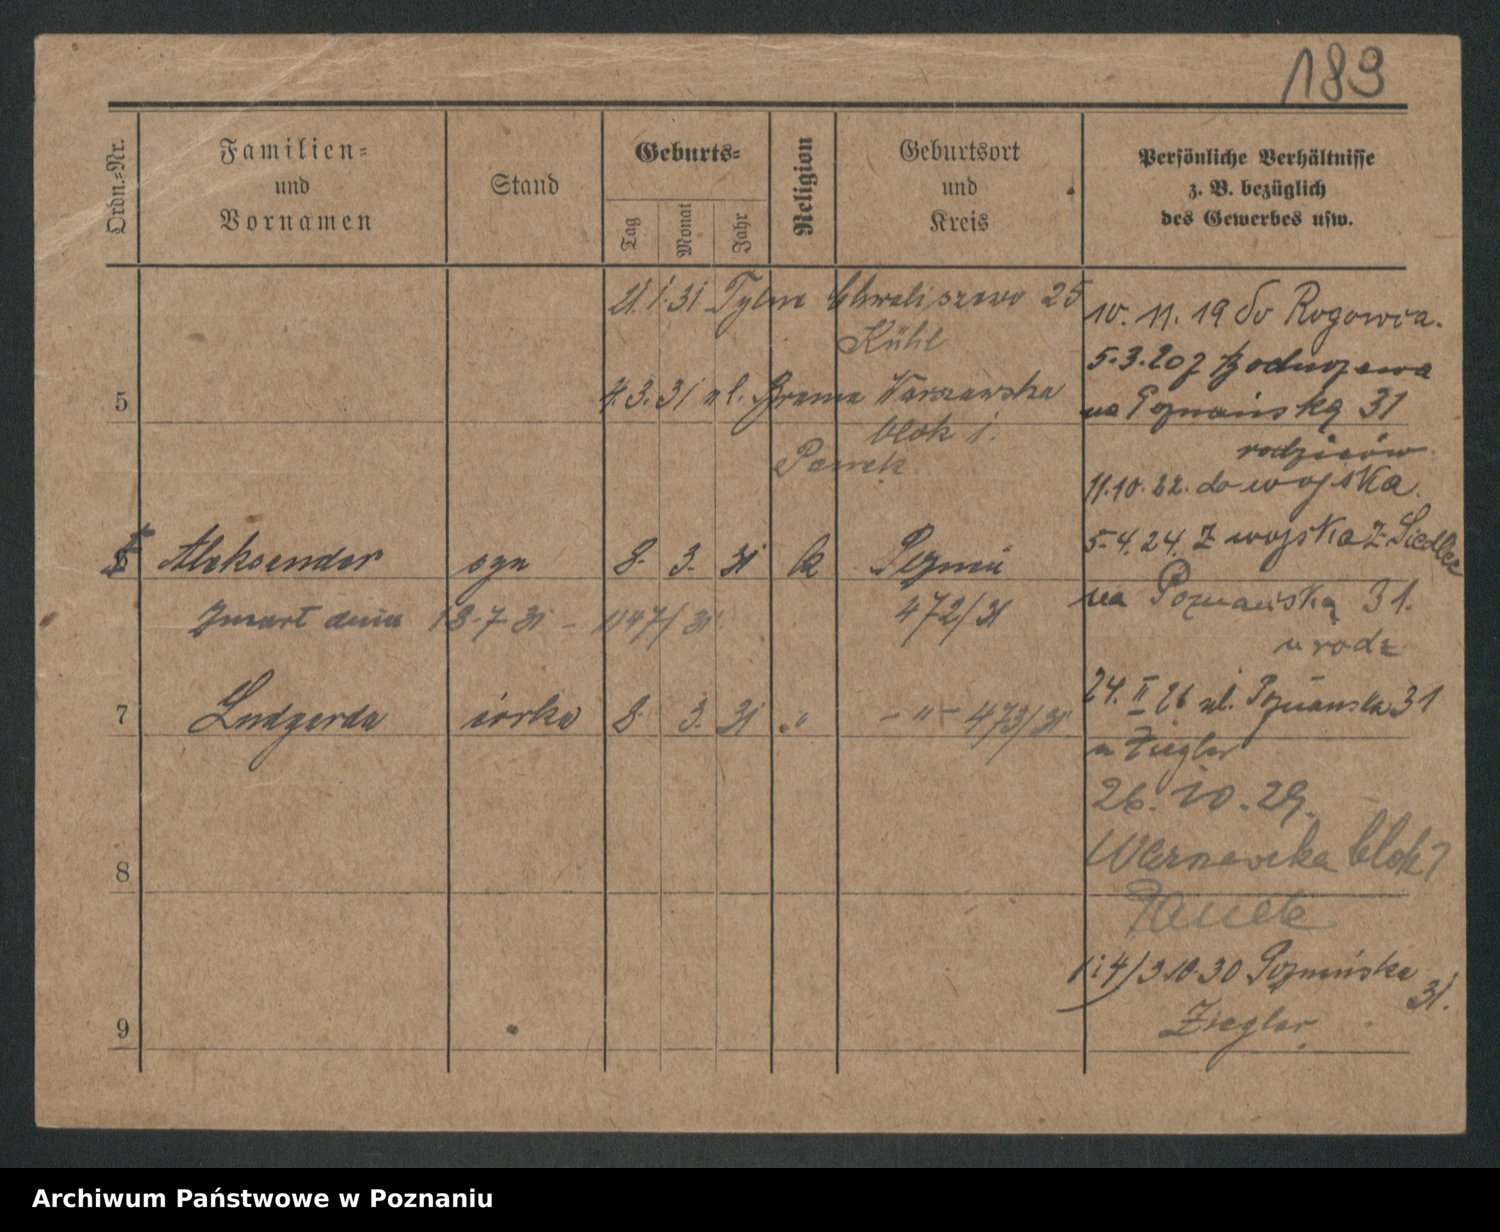 189
Ordn.-Nr.
Familien-
und
Vornamen
Stand
Geburts-
Tag
Monat
Jahr
Religion
Geburtsort
und
Kreis
Persönliche Verhältnisse
z. B. bezüglich
des Gewerbes usw.
21.1.31 Tylne Chwaliszewo 25
Kühl
4.3.31 ul. Brama Warszawska
blok 1.
Panek
5
6 Aleksander syn 8. 3. 31 k
472/31
Zmarł dnia 18.7.31 - 1147/31
7 Ludgarda córka 8. 3. 31 " - " - 473/31
8
9
10. 11. 19 do Rogowca.
5.3.20 z
na Poznańską 31
rodziców
11.10.22. do wojska.
5.4.24. z wojska z Siedlec
na Poznańską 31.
u rodz
24. II 26 ul. Poznańska 31
u Ziegler
26. 10. 29.
Warszawska blok 1
Panek
3.10.30 Poznańska
31.
Ziegler
Archiwum Państwowe w Poznaniu